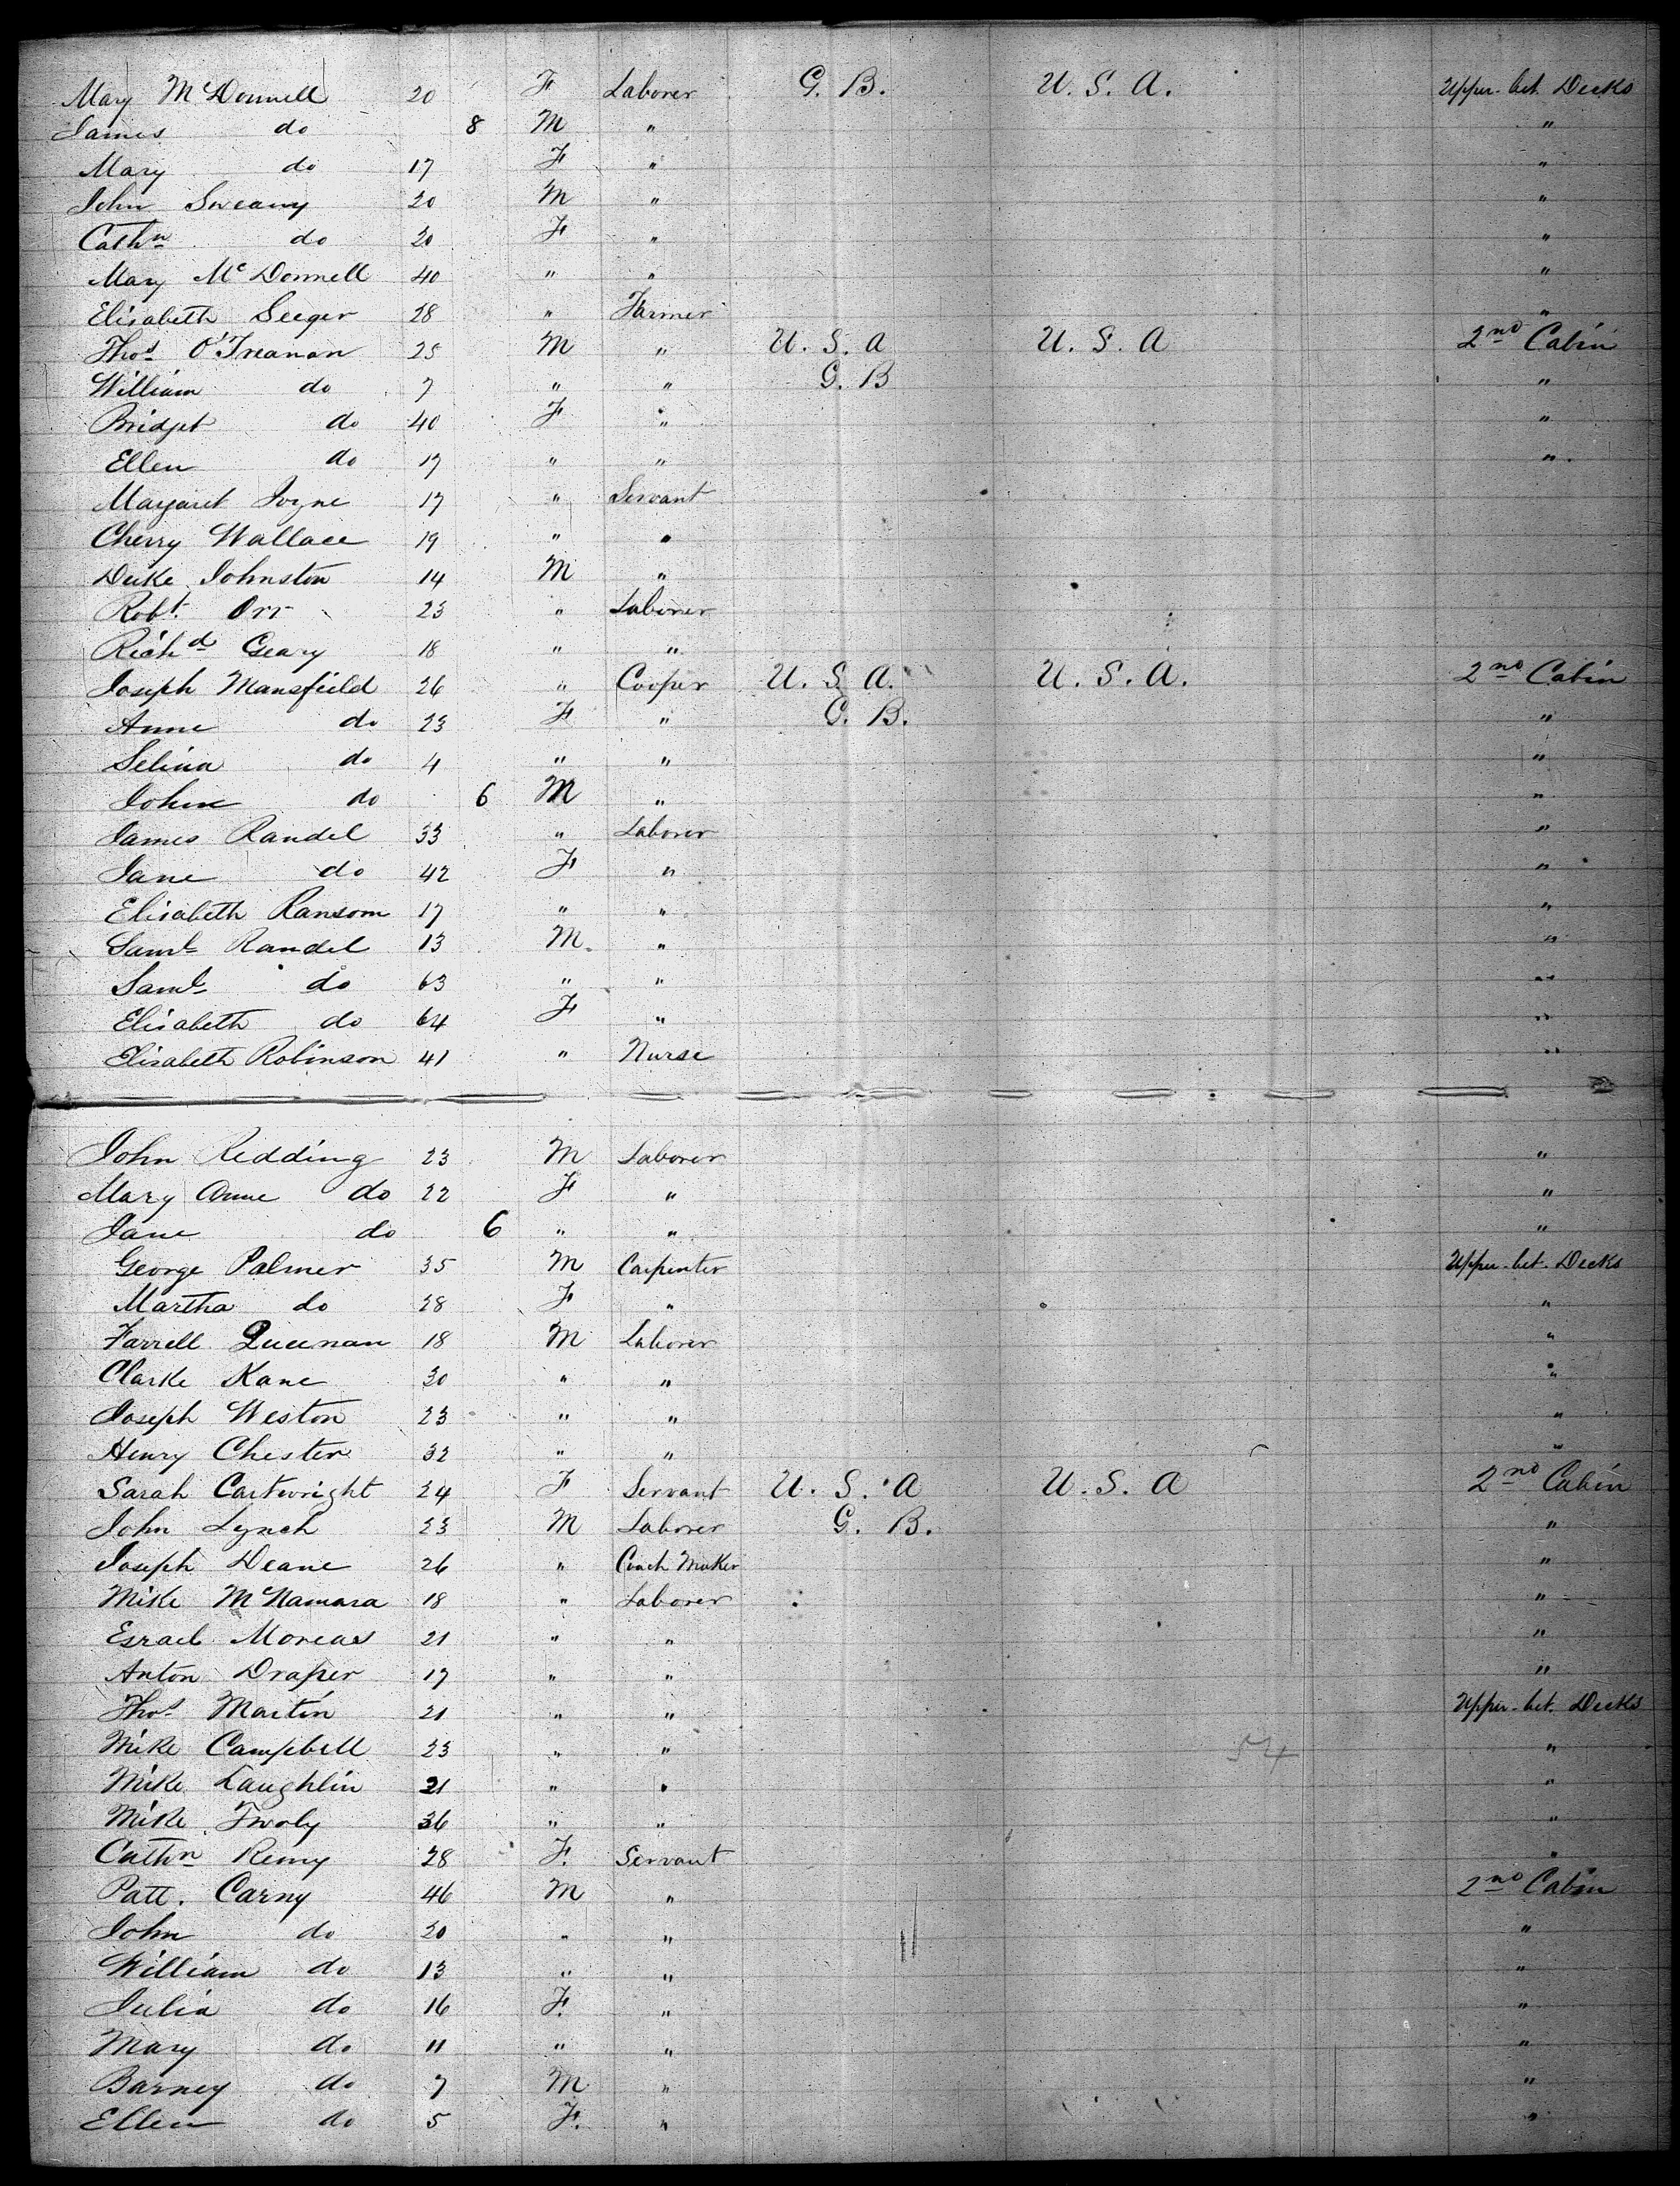 Mary McDonnell 20 F Laborer G. B. U. S. A. Upper. bet. Decks
James do 8 M " "
Mary do 17 F " "
John Sweany 20 M " "
Cathn do 20 F " "
Mary McDonnell 40 " " "
Elisabeth Seeger 28 " Farmer "
Thos O'Treanan 25 M " U. S. A U. S. A 2nd Cabin
William do 7 " " G. B "
Bridget do 40 F " "
Ellen do 17 " " "
Margaret Joyne 17 " Servant
Cherry Wallace 19 " "
Duke Johnston 14 M "
Robt. Orr 23 " Laborer
Richd Geary 18 " "
Joseph Mansfield 26 " Cooper U. S. A. U. S. A. 2nd Cabin
Anne do 23 F " G. B. "
Selina do 4 " " "
John do 6 M " "
James Randel 33 " Laborer "
Jane do 42 F " "
Elisabeth Ransom 17 " " "
Saml Randel 13 M. " "
Saml do 63 " " "
Elisabeth do 64 F " "
Elisabeth Robinson 41 " Nurse "
John Redding 23 M Laborer "
Mary Anne do 22 F " "
Jane do 6 " " "
George Palmer 35 M Carpenter Upper. bet. Decks
Martha do 28 F " "
Farrell Queenan 18 M Laborer "
Clarke Kane 30 " " "
Joseph Weston 23 " " "
Henry Chester 32 " " "
Sarah Cartwright 24 F Servant U. S. A U. S. A 2nd Cabin
John Lynch 23 M Laborer G. B. "
Joseph Deane 26 " Coach Maker "
Mike McNamara 18 " Laborer "
Esrael Moreas 21 " " "
Anton Draper 17 " " "
Thos Martin 21 " " Upper. bet. Decks
Mike Campbell 23 " " 54 "
Mike Laughlin 21 " " "
Mike 36 " " "
Cathn Remy 28 F. Servant "
Patt. Carny 46 M " 2nd Cabin
John do 20 " " "
William do 13 " " "
Julia do 16 F. " "
Mary do 11 " " "
Barney do 7 M " "
Ellen do 5 F. " "